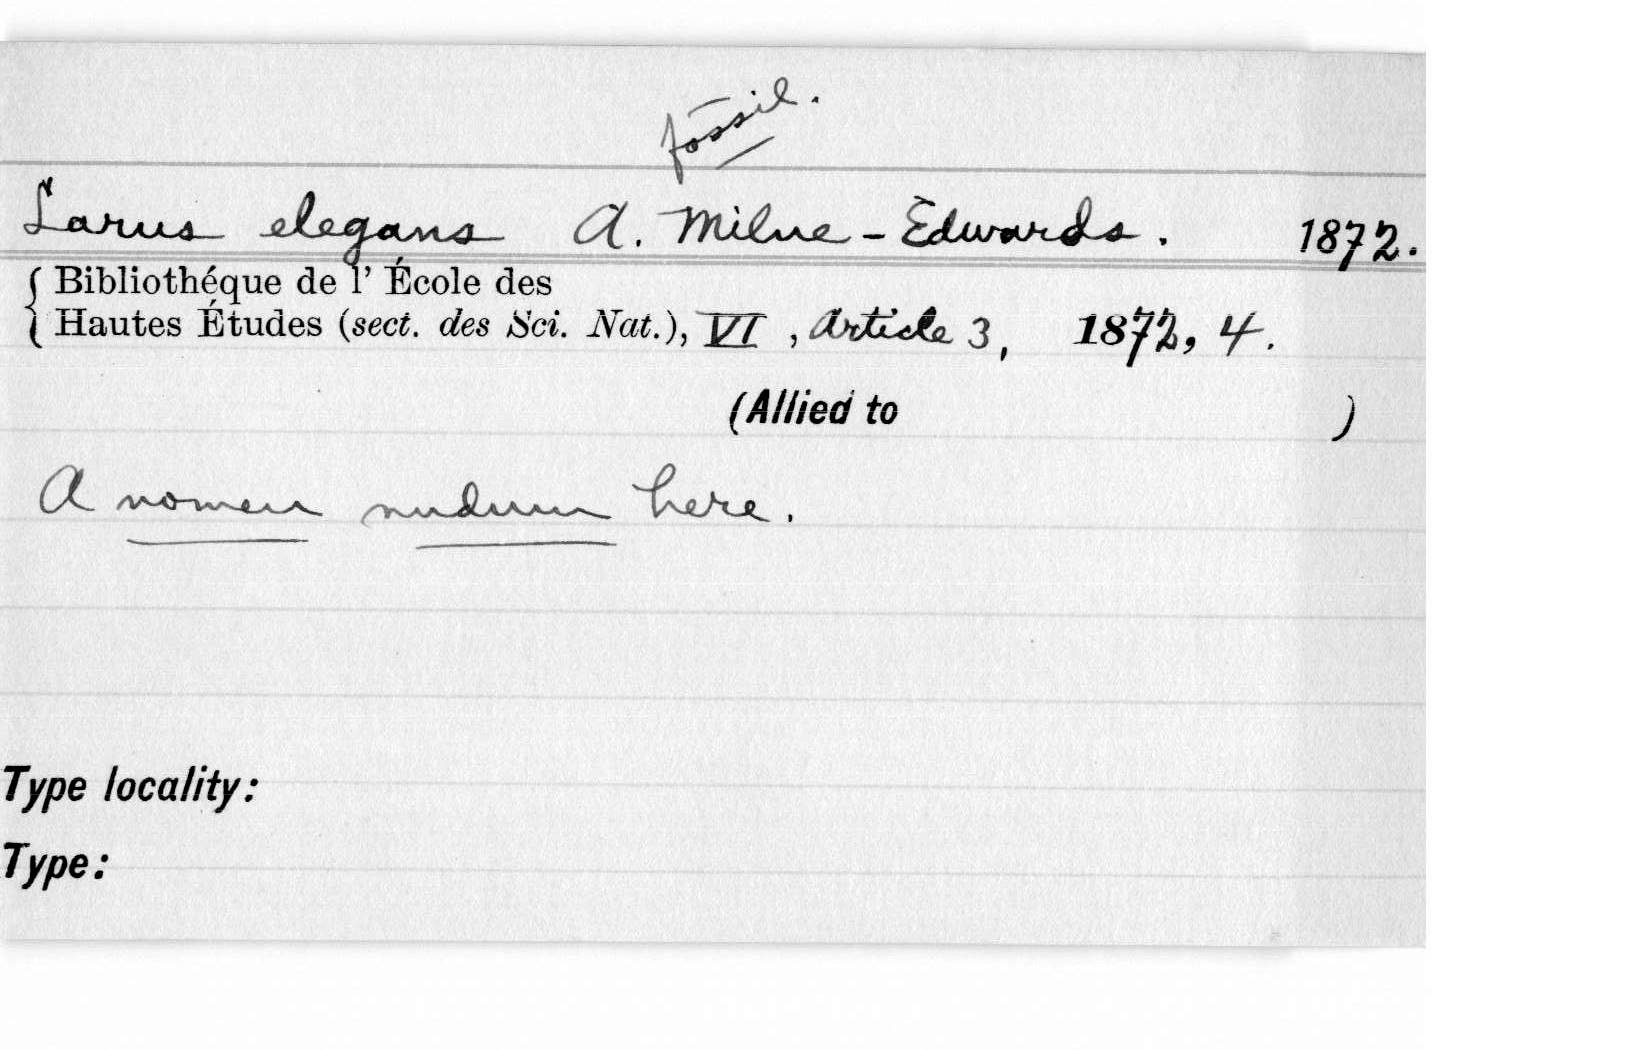 fossil.
Larus elegans A. Milne-Edwards. 1872.
Bibliothéque de l' École des
Hautes Études (sect. des Sci. Nat.), VI, Article 3, 1872, 4.
(Allied to )
A nomen nudum here.
Type locality:
Type: